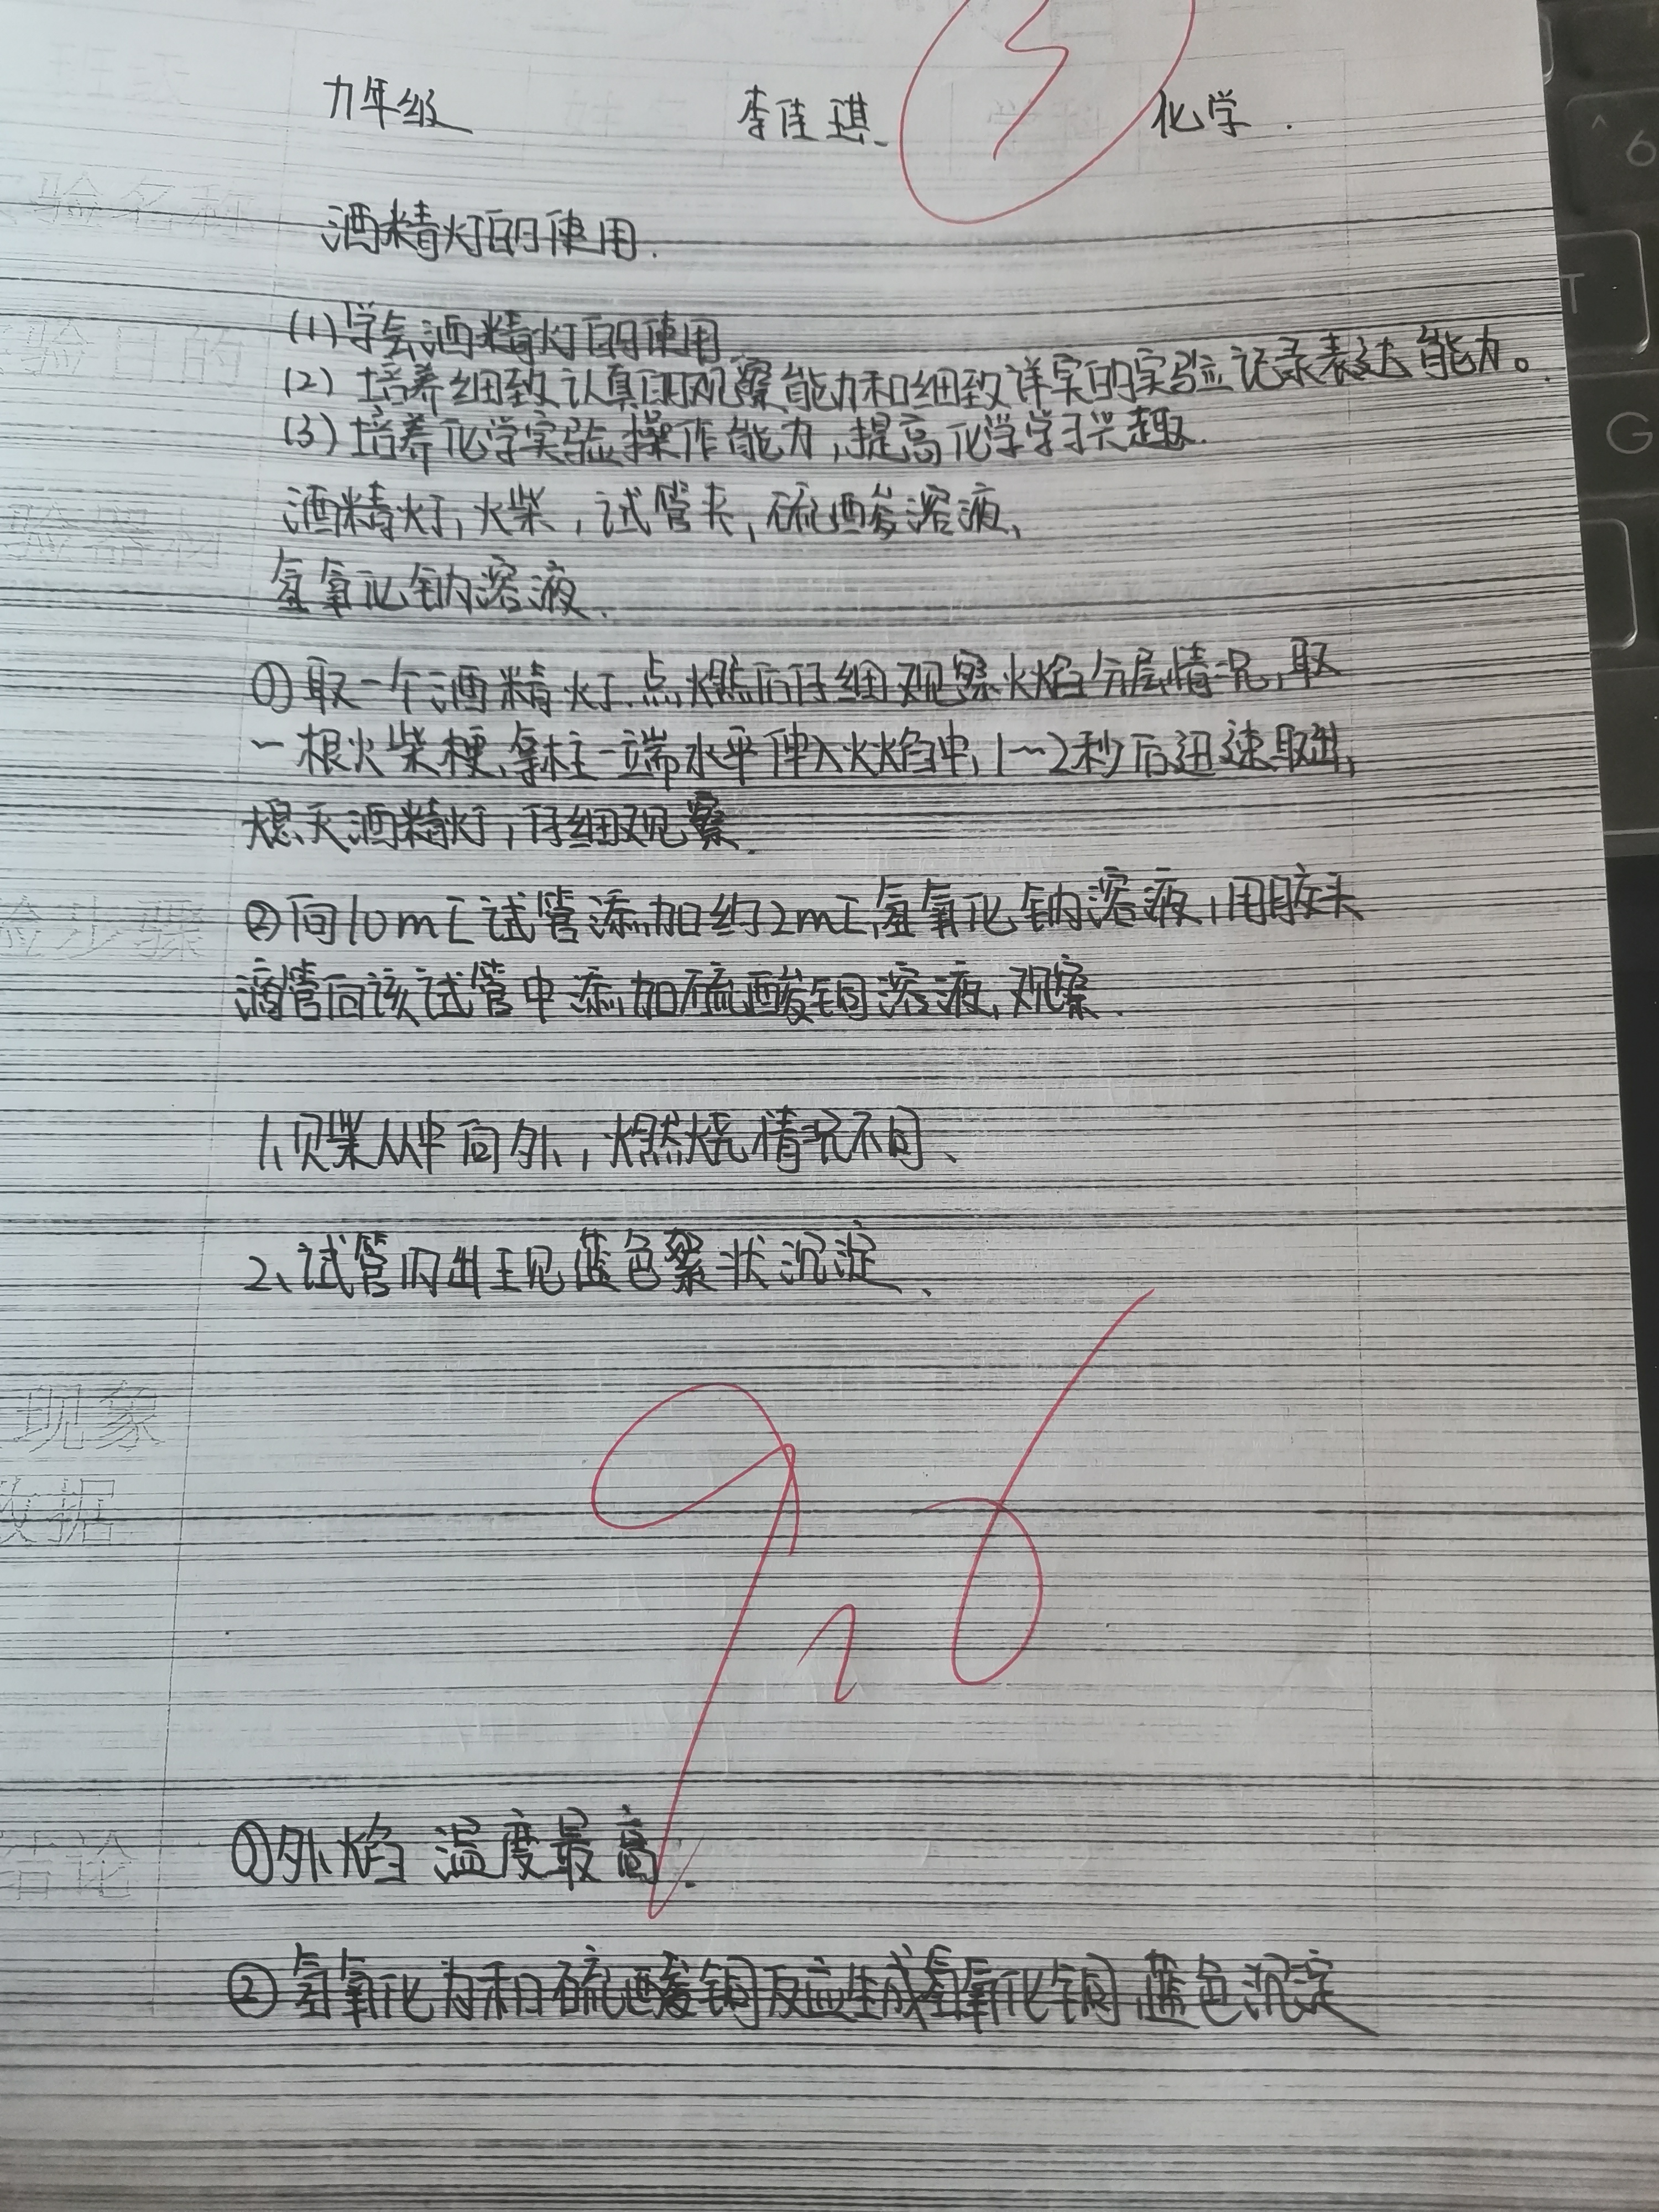 九年级 李佳琪 化学.
验名称 酒精灯的使用.
验目的 (1)学会酒精灯的使用
(2)培养细致认真的观察能力和细致详实的实验记录表达能力。
(3)培养化学实验操作能力,提高化学学习兴趣.
验器材 酒精灯,火柴,试管夹,硫酸溶液、
氢氧化钠溶液.
①取一个酒精灯.点燃后仔细观察火焰分层情况,取
一根火柴梗,拿住一端水平伸入火焰中,1~2秒后迅速取出,
熄灭酒精灯,仔细观察.
验步骤 ②向10mL试管添加约2mL氢氧化钠溶液,用胶头
滴管向该试管中添加硫酸铜溶液,观察.
1、火柴从中向外,燃烧情况不同、
2、试管内出现蓝色絮状沉淀、
现象
数据
96
结论 ①外焰温度最高.
②氢氧化钠和硫酸铜反应生成氢氧化铜蓝色沉淀
6
T
G